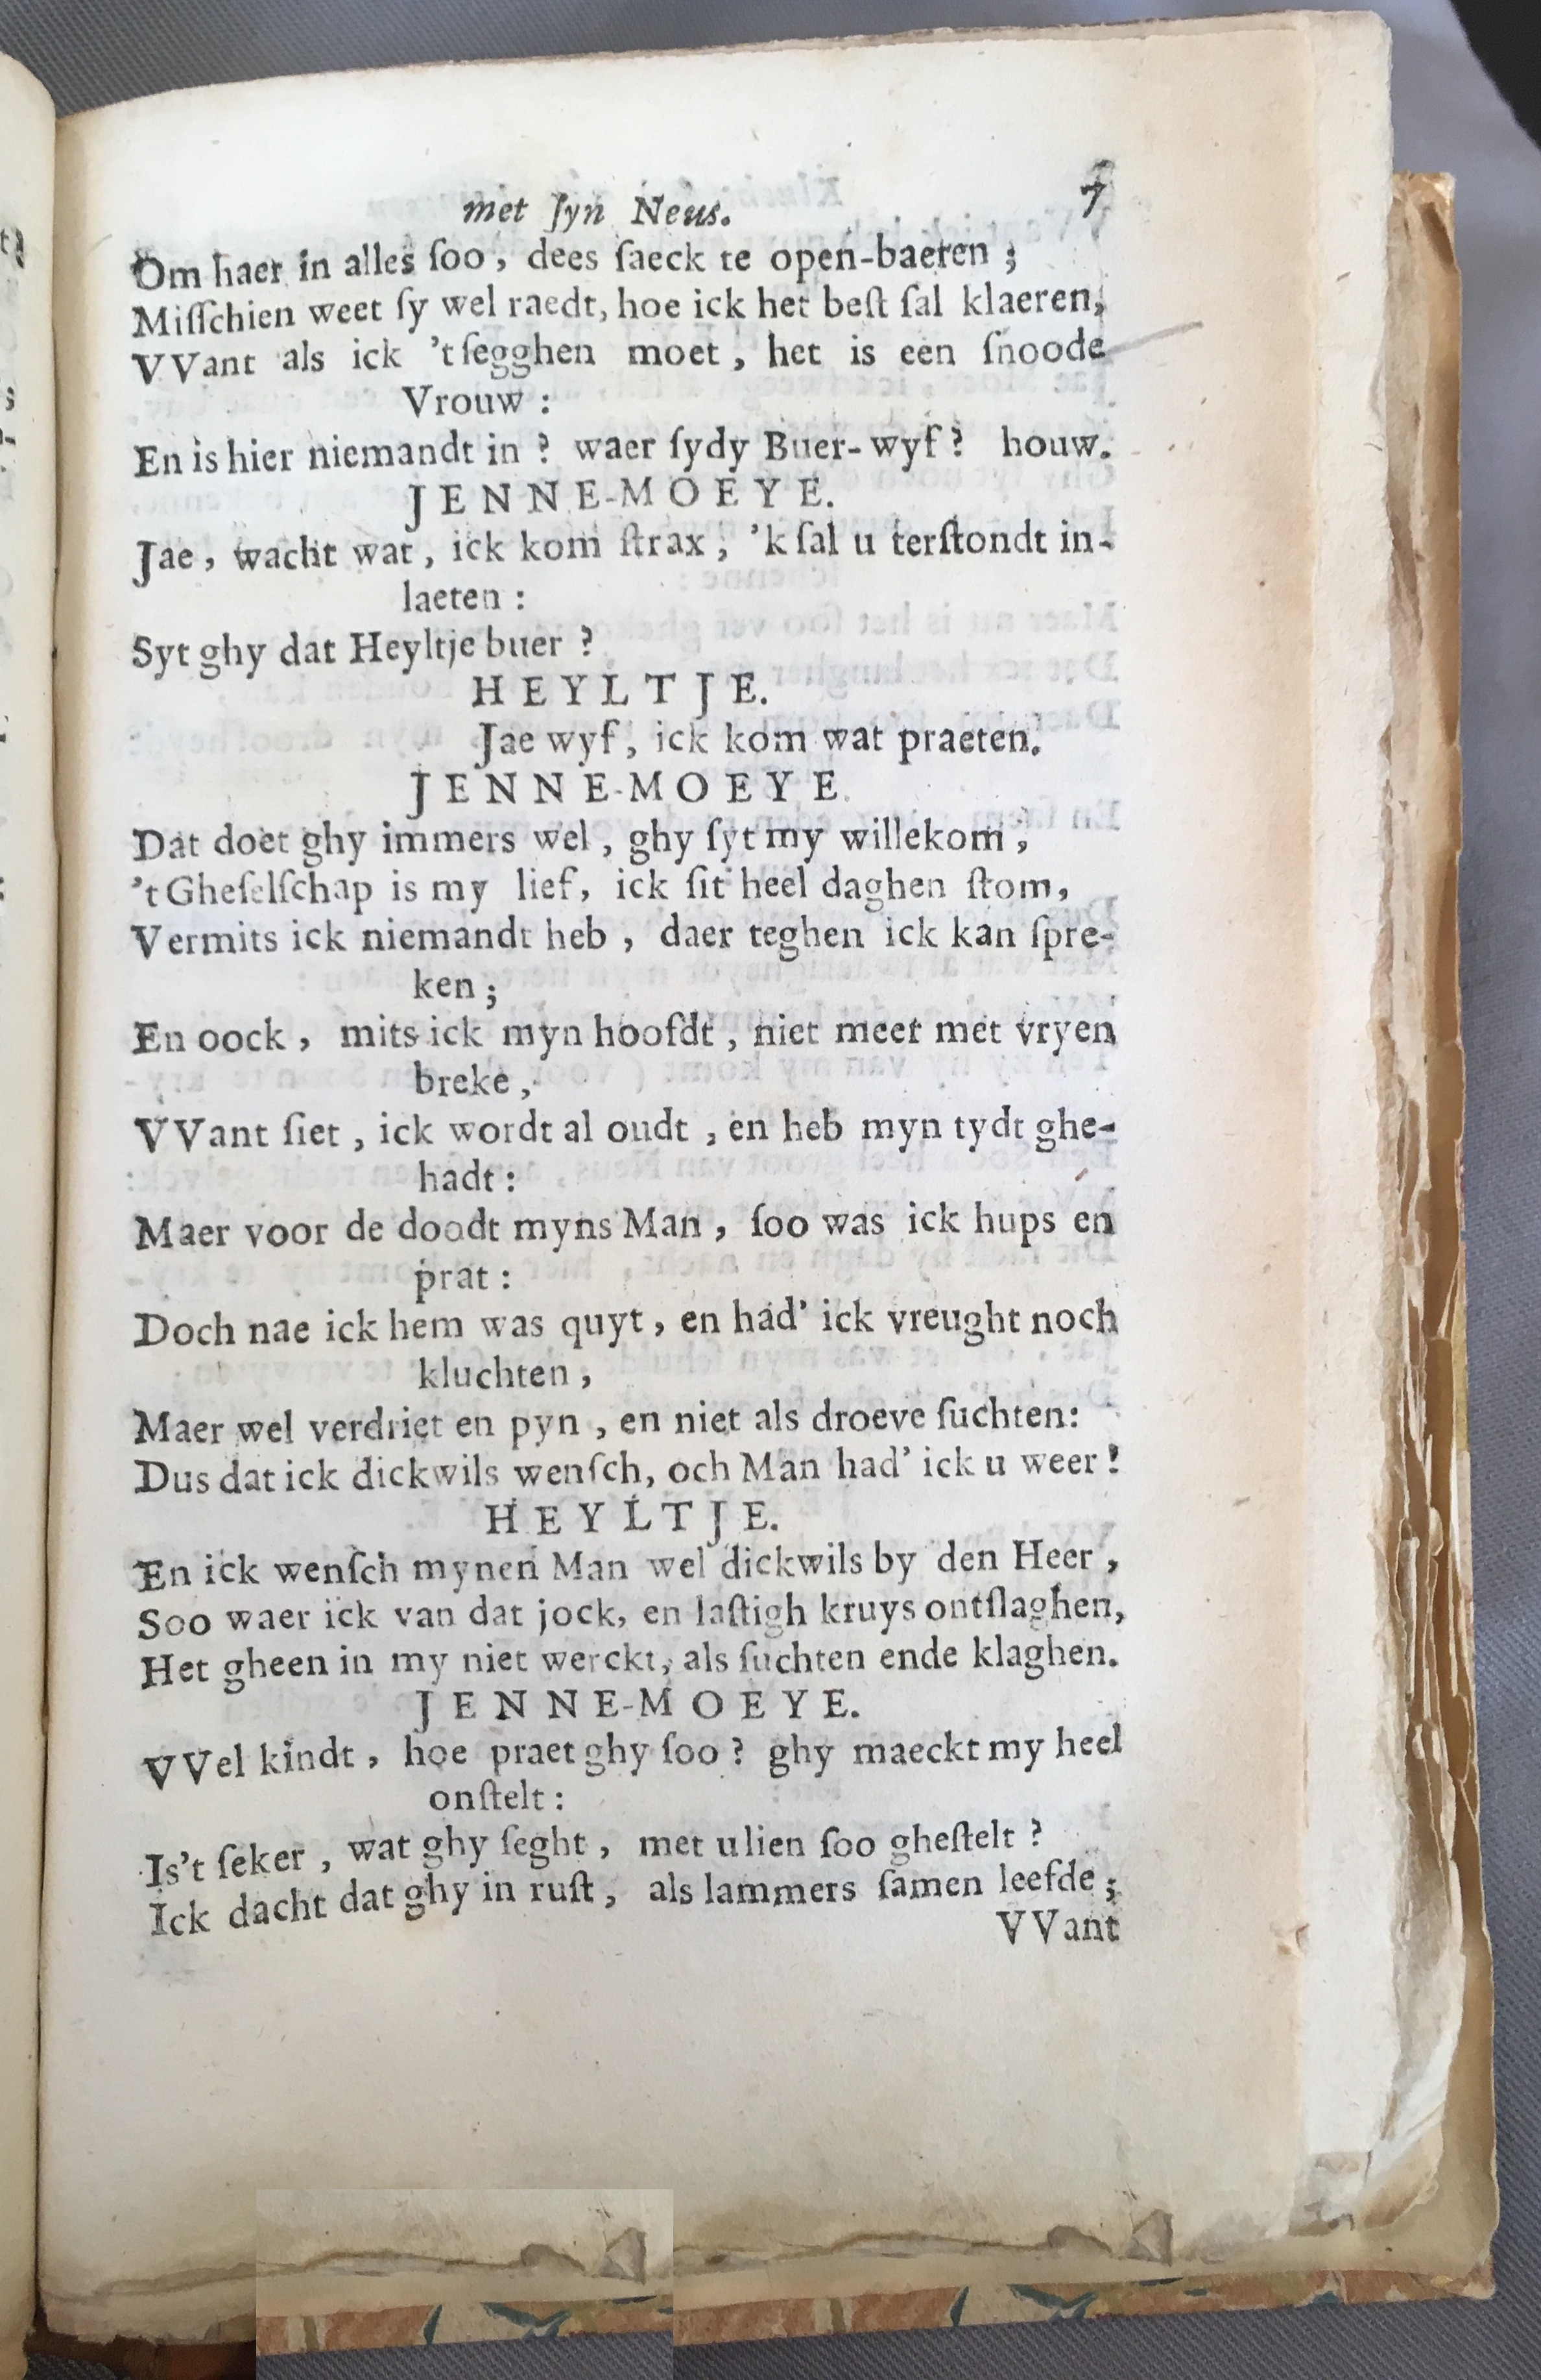 met ſyn Neus. 7
Om haer in alles ſoo, dees ſaeck te open-baeren;
Miſſchien weet ſy wel raedt, hoe ick het beſt ſal klaeren,
VVant als ick 't ſegghen moet, het is een ſnoode
Vrouw:
En is hier niemandt in? waer ſydy Buer-wyf? houw.
JENNE-MOEYE.
Jae, wacht wat, ick kom ſtrax, 'k ſal u terſtondt in-
laeten:
Syt ghy dat Heyltje buer?
HEYLTJE.
Jae wyf, ick kom wat praeten.
JENNE-MOEYE.
Dat doet ghy immers wel, ghy ſyt my willekom,
't Gheſelſchap is my lief, ick ſit heel daghen ſtom,
Vermits ick niemandt heb, daer teghen ick kan ſpre-
ken;
En oock, mits ick myn hoofdt, niet meer met vryen
breke,
VVant ſiet, ick wordt al oudt, en heb myn tydt ghe-
hadt:
Maer voor de doodt myns Man, ſoo was ick hups en
prat:
Doch nae ick hem was quyt, en had' ick vreught noch
kluchten,
Maer wel verdriet en pyn, en niet als droeve ſuchten:
Dus dat ick dickwils wenſch, och Man had' ick u weer!
HEYLTJE.
En ick wenſch mynen Man wel dickwils by den Heer,
Soo waer ick van dat jock, en laſtigh kruys ontſlaghen,
Het gheen in my niet werckt, als ſuchten ende klaghen.
JENNE-MOEYE.
VVel kindt, hoe praet ghy ſoo? ghy maeckt my heel
onſtelt:
Is't ſeker, wat ghy ſeght, met ulien ſoo gheſtelt?
Ick dacht dat ghy in ruſt, als lammers ſamen leefde;
VVant